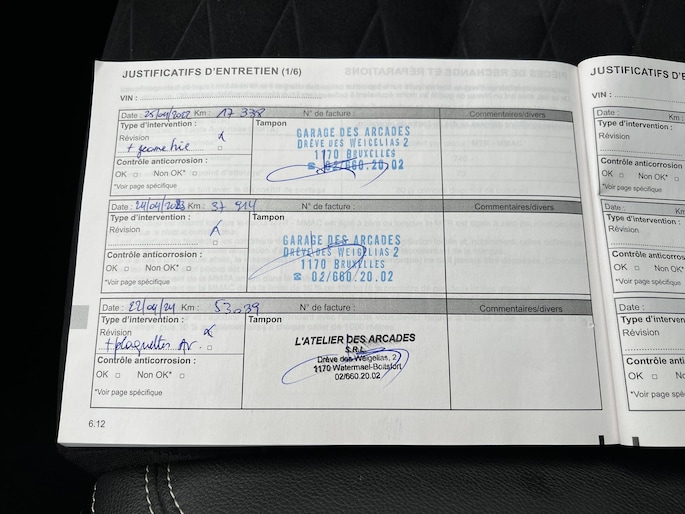 JUSTIFICATIFS D'ENTRETIEN (1/6)
VIN :
Date : 25/04/2022 Km : 17 338 N° de facture : Commentaires/divers
Type d'intervention : Tampon
Révision
+ geometrie
Contrôle anticorrosion :
OK □ Non OK* □
*Voir page spécifique
GARAGE DES ARCADES
DRÈVE DES WEIGELIAS 2
1170 BRUXELLES
☎ 02/660.20.02
Date : 24/04/2023 Km : 37 914 N° de facture : Commentaires/divers
Type d'intervention : Tampon
Révision
Contrôle anticorrosion :
OK □ Non OK* □
*Voir page spécifique
GARAGE DES ARCADES
DRÈVE DES WEIGELIAS 2
1170 BRUXELLES
☎ 02/660.20.02
Date : 22/04/24 Km : 53039 N° de facture : Commentaires/divers
Type d'intervention : Tampon
Révision
+ plaquettes Av.
Contrôle anticorrosion :
OK □ Non OK* □
*Voir page spécifique
L'ATELIER DES ARCADES
S.R.L.
Drève des Weigelias, 2
1170 Watermael-Boitsfort
02/660.20.02
6.12
JUSTIFICATIFS D'E
VIN :
Date : Km
Type d'intervention
Révision
Contrôle anticorrosio
OK □ Non OK*
*Voir page spécifique
Date :
Type d'interven
Révision
Contrôle antico
OK □ Non
*Voir page spécifi
Date :
Type d'interven
Révision
Contrôle anti
OK □ No
*Voir page spé